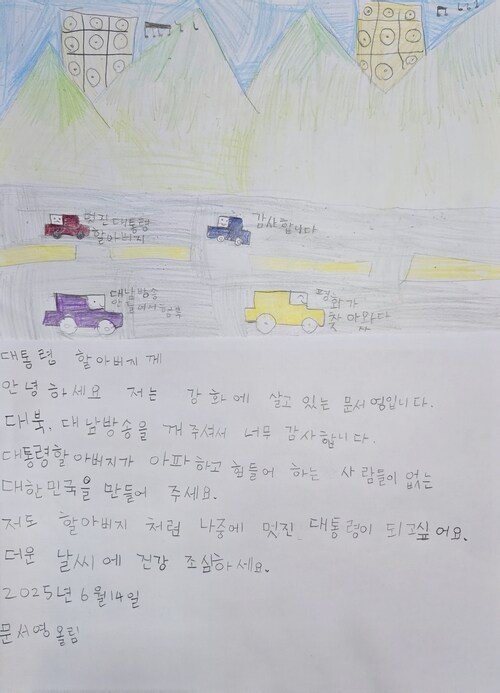 멋진 대통령
할아버지
감사합니다
대남방송
안들어서 행복
평
화가
찾아와다
대통령 할아버지께
안녕하세요 저는 강화에 살고 있는 문서영입니다.
대북, 대남방송을 꺼주셔서 너무 감사합니다.
대통령할아버지가 아파하고 힘들어 하는 사람들이 없는
대한민국을 만들어 주세요.
저도 할아버지 처럼 나중에 멋진 대통령이 되고싶어요.
더운 날씨에 건강 조심하세요.
2025년 6월 14일
문서영 올림